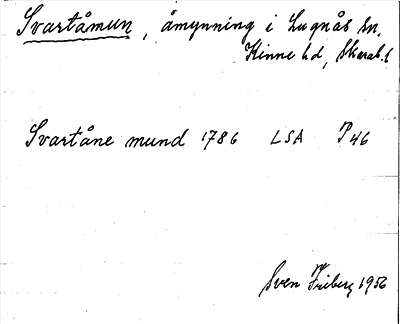 Svartåmun, åmynning i Lugnås sn,
Kinne hd, Skarab. l
Svartåne mund 1786 LSA P46
Sven Friberg 1956